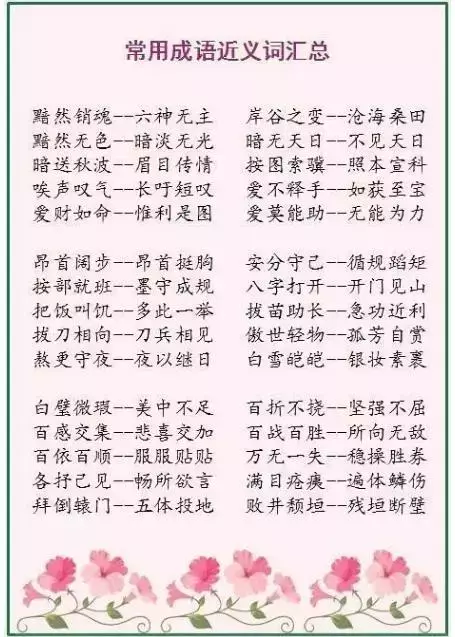 常用成语近义词汇总
黯然销魂--六神无主 岸谷之变--沧海桑田
黯然无色--暗淡无光 暗无天日--不见天日
暗送秋波--眉目传情 按图索骥--照本宣科
唉声叹气--长吁短叹 爱不释手--如获至宝
爱财如命--惟利是图 爱莫能助--无能为力
昂首阔步--昂首挺胸 安分守己--循规蹈矩
按部就班--墨守成规 八字打开--开门见山
把饭叫饥--多此一举 拔苗助长--急功近利
拔刀相向--刀兵相见 傲世轻物--孤芳自赏
熬更守夜--夜以继日 白雪皑皑--银妆素裹
白璧微瑕--美中不足 百折不挠--坚强不屈
百感交集--悲喜交加 百战百胜--所向无敌
百依百顺--服服贴贴 万无一失--稳操胜券
各抒己见--畅所欲言 满目疮痍--遍体鳞伤
拜倒辕门--五体投地 败井颓垣--残垣断壁